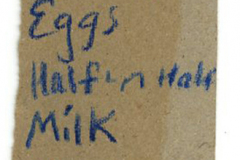 Eggs
Half-n Half
Milk